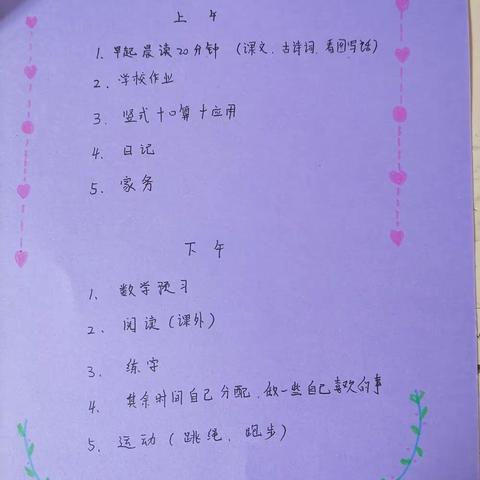 上 午
1. 早起晨读20分钟 （课文、古诗词、看图写话）
2. 学校作业
3. 竖式+口算+应用
4. 日记
5. 家务
下 午
1. 数学预习
2. 阅读（课外）
3. 练字
4. 其余时间自己分配，做一些自己喜欢的事
5. 运动（跳绳、跑步）